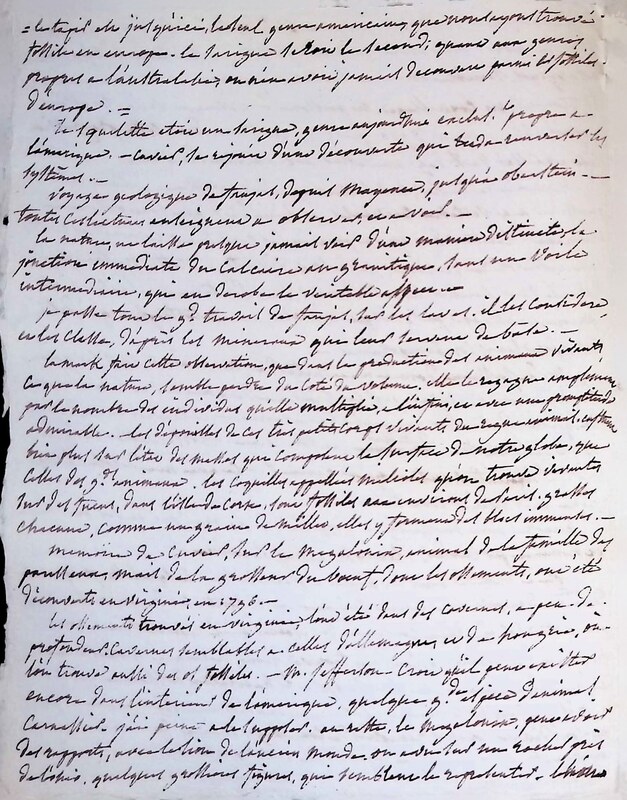 = le tapir est jusqu'ici, le seul genre americain, que nous ayons trouvé
fossile en europe. le sarigue sera le second; quant aux genres
propres a l'australasie, on n'en avoit jamais decouvert parmi les fossiles
d'europe. =
le squelette etoit un sarigue, genre aujourdhui exclus.t propre a
l'amerique. - Cuvier, se rejouit d'une découverte qui tend a renverser les
systêmes. -
Voyage geologique de faujas, depuis Mayence, jusqu'à oberstein -
toutes ces lectures enseignent a observer, et a voir. -
la nature, ne laisse presque jamais voir d'une maniere distincte, la
jonction immediate du calcaire au granitique, sans un voile
intermediaire, qui en derobe le veritable aspect. -
je passe tout le gd travail de faujas, sur les laves. il les considere
et les classe, d'après les mineraux qui leur servent de base. -
lamark fait cette observation, que dans la production des animaux vivants
ce que la nature, semble perdre du coté du volume, elle le regagne amplement
par le nombre des individus qu'elle multiplie, a l'infini, et avec une promptitude
admirable. - les dépouilles de ces très petits corps vivants du regne animal,
bien plus sur l'etat des masses qui composent la surface de notre globe, que
celles des gds animaux. les coquilles appellées milioles qu'on trouve vivantes
sur des fucus, dans l'isle de Corse, sont fossiles aux environs de paris. grosses
chacune, comme un grain de millet, elles y forment des blocs immenses. -
memoire de Cuvier, sur le megalonix, animal de la famille des
paresseux, mais de la grosseur du boeuf, dont les ossements, ont été
découverts en virginie, en 1796. -
les ossements trouvés en virginie, l'ont été dans des cavernes, a peu de
profondeur. cavernes semblables a celles d'allemagne, et de hongrie, où
l'on trouve aussi des os fossiles. - Mr. Jefferson - croit qu'il peut exister
encore dans l'interieur de l'amerique, quelque gde espece d'animal
carnassier. j'ai peine a le supposer. au reste, le megalonix, peut avoir
des rapports, avec le lion de l'ancien monde, on a vu sur un rocher près
de l'ohio, quelques grossieres figures, qui semblent le representer.